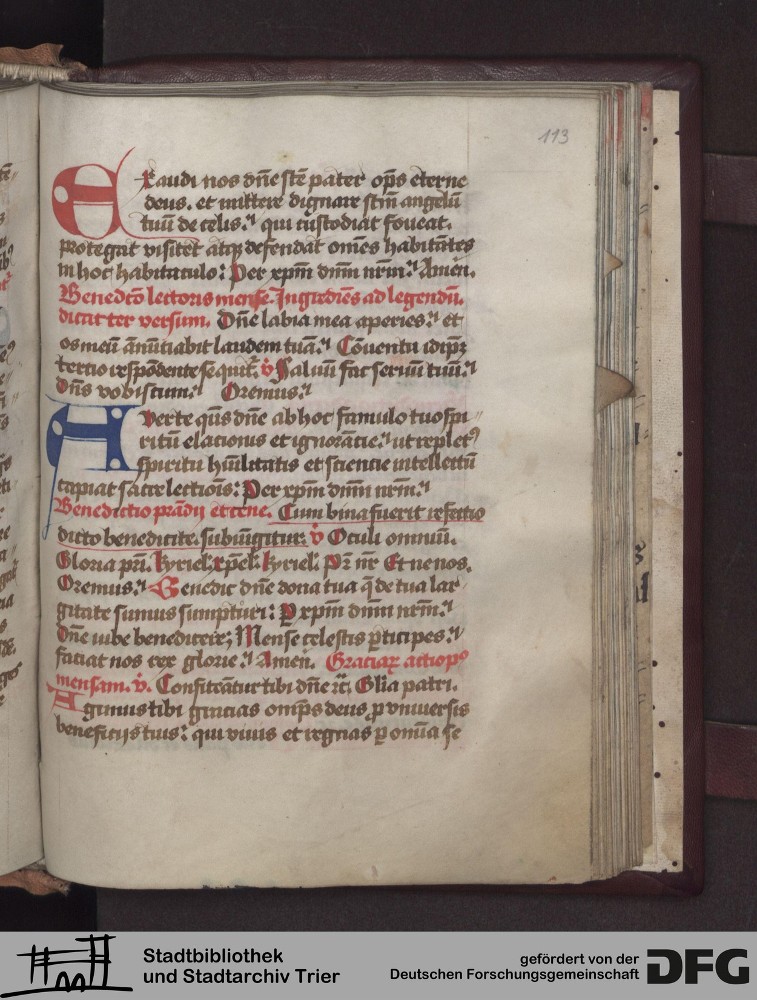 113
Exaudi nos dn̄e sc̄te pater op̄s eterne
deus. et mittere dignare sc̄m angelū
tuū de celis. qui custodiat foueat.
protegat visitet atq̨ defendat om̄es habitātes
in hoc habitaculo: Per xp̄m dn̄m nr̄m. Amen.
Benedcō lectoris mense. Ingrediēs ad legendū.
dicat ter versum. Dn̄e labia mea aperies. et
os meū ānūtiabit laudem tuā. Cōuentu idip̄ꝫ
tertio respōdente sequit̄. v̇ Saluū fac seruū tuū.
Dn̄s vobiscum. Oremus.
Auerte q̄s dn̄e ab hoc famulo tuo spi〃
ritū elationis et ignorātie. ut replet⁹
spiritu hūilitatis et scientie intellectū
capiat sacre lectiōis: Per xp̄m dn̄m nr̄m.
Benedictio prādij et cene. Cum bina fuerit refectio
dicto benedicite. subiūgitur. v̇ Oculi omniū.
Gloria pr̄i. kyriel̄. xp̄el̄. kyriel̄. Pr̄ nr̄ Et ne nos.
Oremus. Benedic dn̄e dona tua q̄ de tua lar〃
gitate sumus sumpturi: ꝑ xp̄m dn̄m nr̄m.
Dn̄e iube benedicere; Mense celestis ꝑticipes.
faciat nos rex glorie. Amen. Graciaꝝ actio pꝰ
mensam. v̇. Confiteātur tibi dn̄e ⁊c̄. Gl̄ia patri.
Agimus tibi gracias omīps deus ꝓ vniuersis
beneficijs tuis: qui viuis et regnas ꝑ om̄ia se
Stadtbibliothek
und Stadtarchiv Trier
gefördert von der
Deutschen Forschungsgemeinschaft
DFG